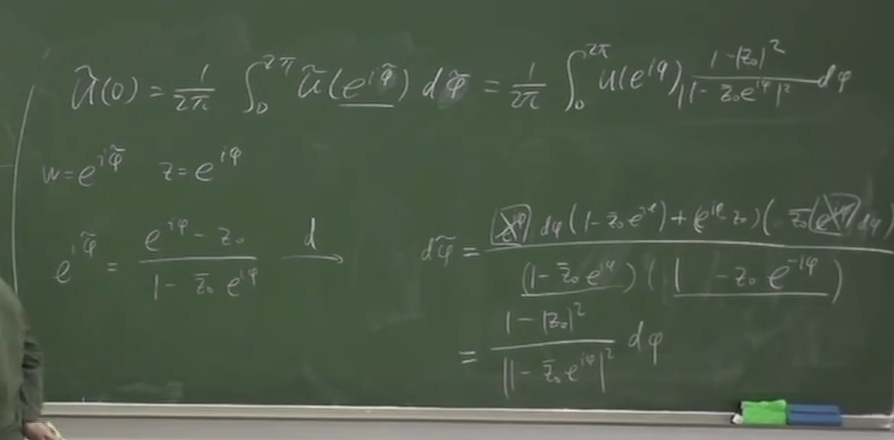 ũ(0) = 1/2π ∫₀^{2π} ũ(e^{iφ̃}) dφ̃ = 1/2π ∫₀^{2π} u(e^{iφ}) (1-|z₀|²)/|1-z̄₀e^{iφ}|² dφ
w=e^{iφ̃} z=e^{iφ}
e^{iφ̃} = (e^{iφ} - z₀)/(1 - z̄₀ e^{iφ}) d→ dφ̃ = (e^{iφ} dφ (1-z̄₀e^{iφ}) + (e^{iφ} z₀)(-z̄₀ e^{iφ} dφ))/((1-z̄₀e^{iφ})(1 - z₀e^{-iφ}))
= (1-|z₀|²)/|1-z̄₀e^{iφ}|² dφ